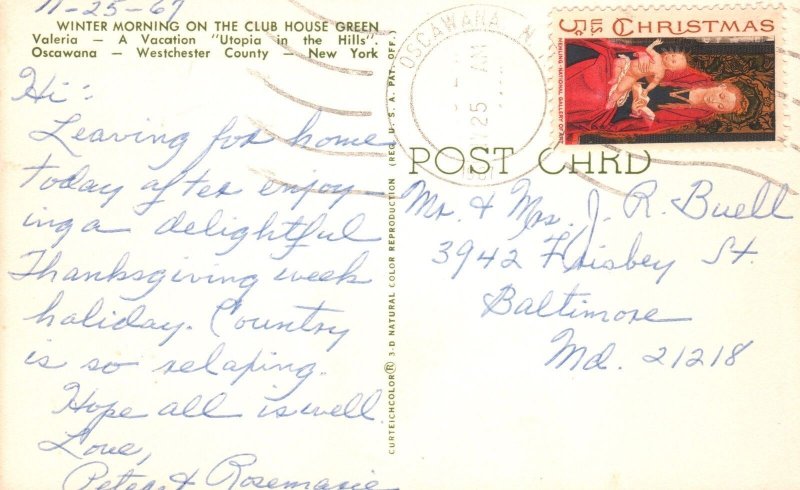 11-25-67
WINTER MORNING ON THE CLUB HOUSE GREEN
Valeria — A Vacation "Utopia in the Hills".
Oscawana — Westchester County — New York
Hi:
Leaving for home
today after enjoy-
ing a delightful
Thanksgiving week
holiday. Country
is so relaxing.
Hope all is well.
Love,
Peter & Rosemarie
CURTEICHCOLOR® 3-D NATURAL COLOR REPRODUCTION (REG. U.S.A. PAT. OFF.)
OSCAWANA, N.
25 AM
5c U.S. CHRISTMAS
MEMLING · NATIONAL GALLERY OF ART
POST CARD
Mr. & Mrs. J. R. Buell
3942 Frisbey St.
Baltimore
Md. 21218